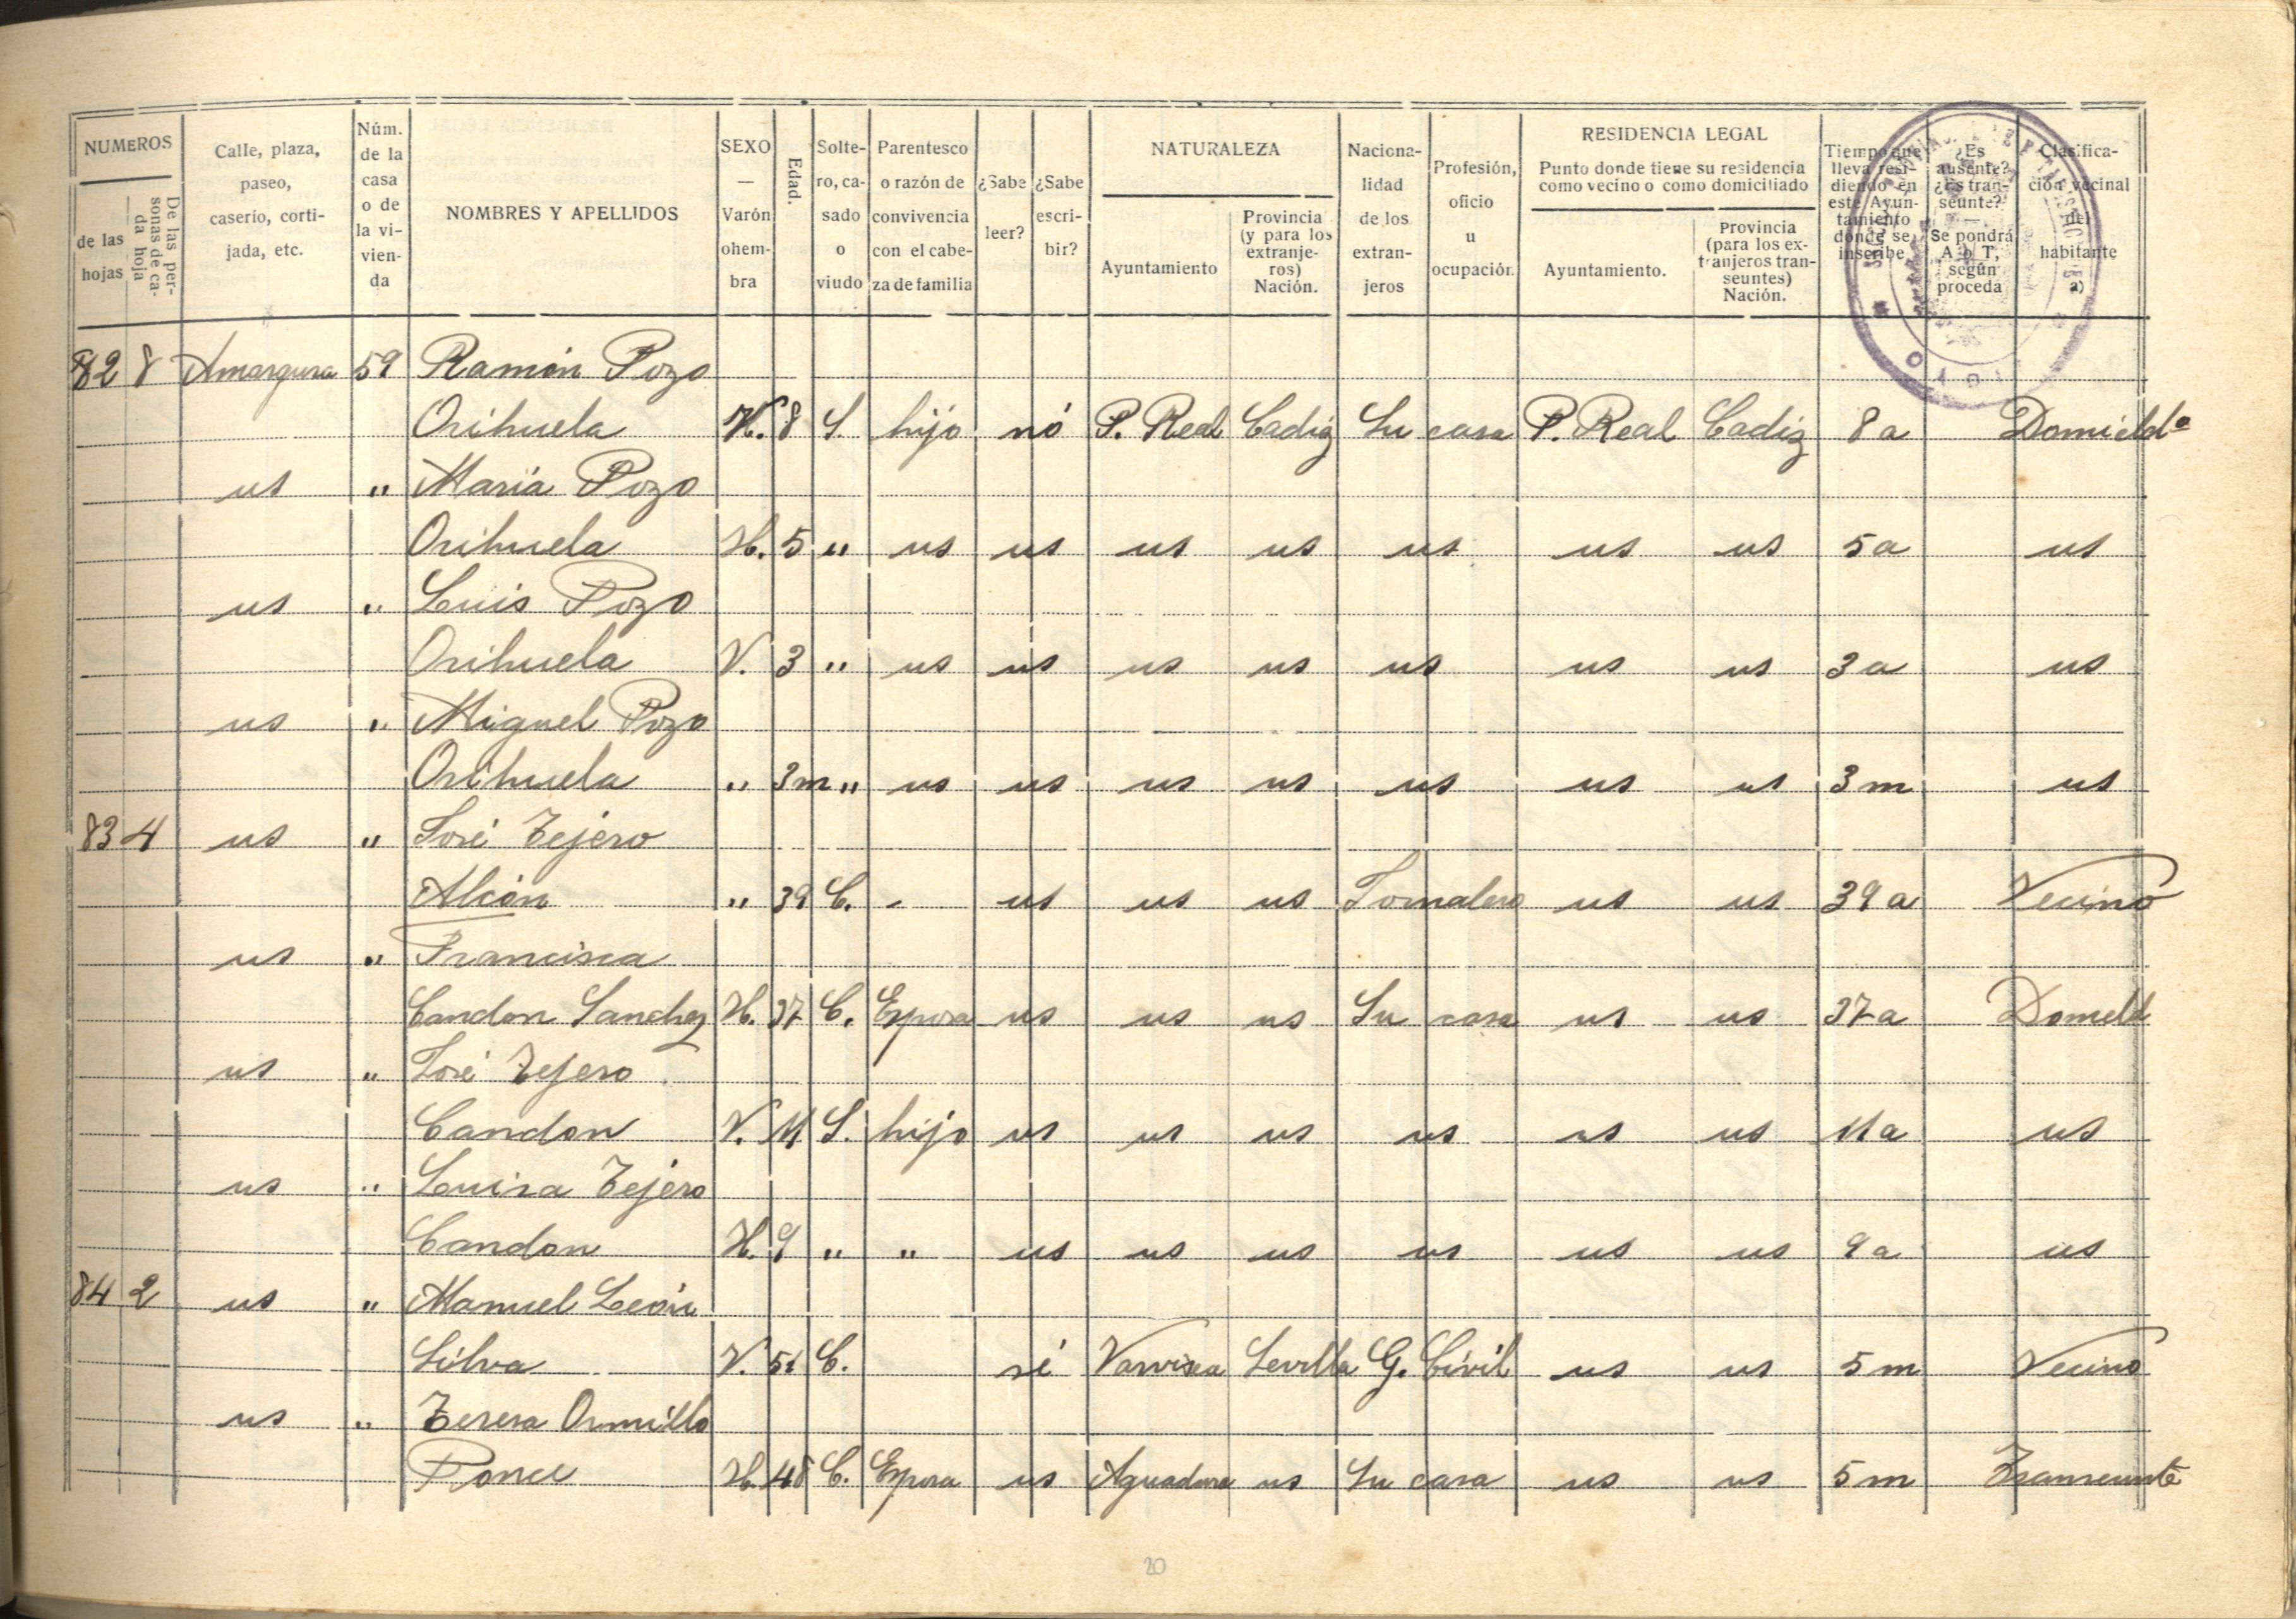 NUMEROS
de las hojas
De las personas de cada hoja
Calle, plaza, paseo, caserío, cortijada, etc.
Núm. de la casa o de la vivienda
NOMBRES Y APELLIDOS
SEXO — Varón ohembra
Edad.
Soltero, casado o viudo
Parentesco o razón de convivencia con el cabeza de familia
¿Sabe leer?
¿Sabe escribir?
NATURALEZA
Ayuntamiento
Provincia (y para los extranjeros) Nación.
Nacionalidad de los extranjeros
Profesión, oficio u ocupación.
RESIDENCIA LEGAL
Punto donde tiene su residencia como vecino o como domiciliado
Ayuntamiento.
Provincia (para los extranjeros transeuntes) Nación.
Tiempo que lleva residiendo en este Ayuntamiento donde se inscribe
¿Es ausente? ¿Es transeunte? — Se pondrá A o T, según proceda
Clasificación vecinal del habitante (a)
82 8 Amargura 59 Ramón Pozo
Orihuela H. 8 S. hijo nó P. Real Cadiz Su casa P. Real Cadiz 8 a Domicld.º
us " María Pozo
Orihuela H. 5 " us us us us us us us 5 a us
us " Luis Pozo
Orihuela V. 3 " us us us us us us us 3 a us
us " Miguel Pozo
Orihuela " 3m " us us us us us us us 3 m us
83 4 us " José Tejero
Alcón " 39 C. - us us us Jornalero us us 39 a Vecino
us " Francisca
Candon Sanchez H. 37 C. Esposa us us us Su casa us us 37 a Domcld
us " José Tejero
Candon V. 11 S. hijo us us us us us us 11 a us
us " Luisa Tejero
Candon H. 9 " " us us us us us us 9 a us
84 2 us " Manuel León
Silva V. 51 C. sí Sevilla G. Civil us us 5 m Vecino
us " Teresa
Ponce H. 48 C. Esposa us Aguadulce us Su casa us us 5 m Transeunte
20